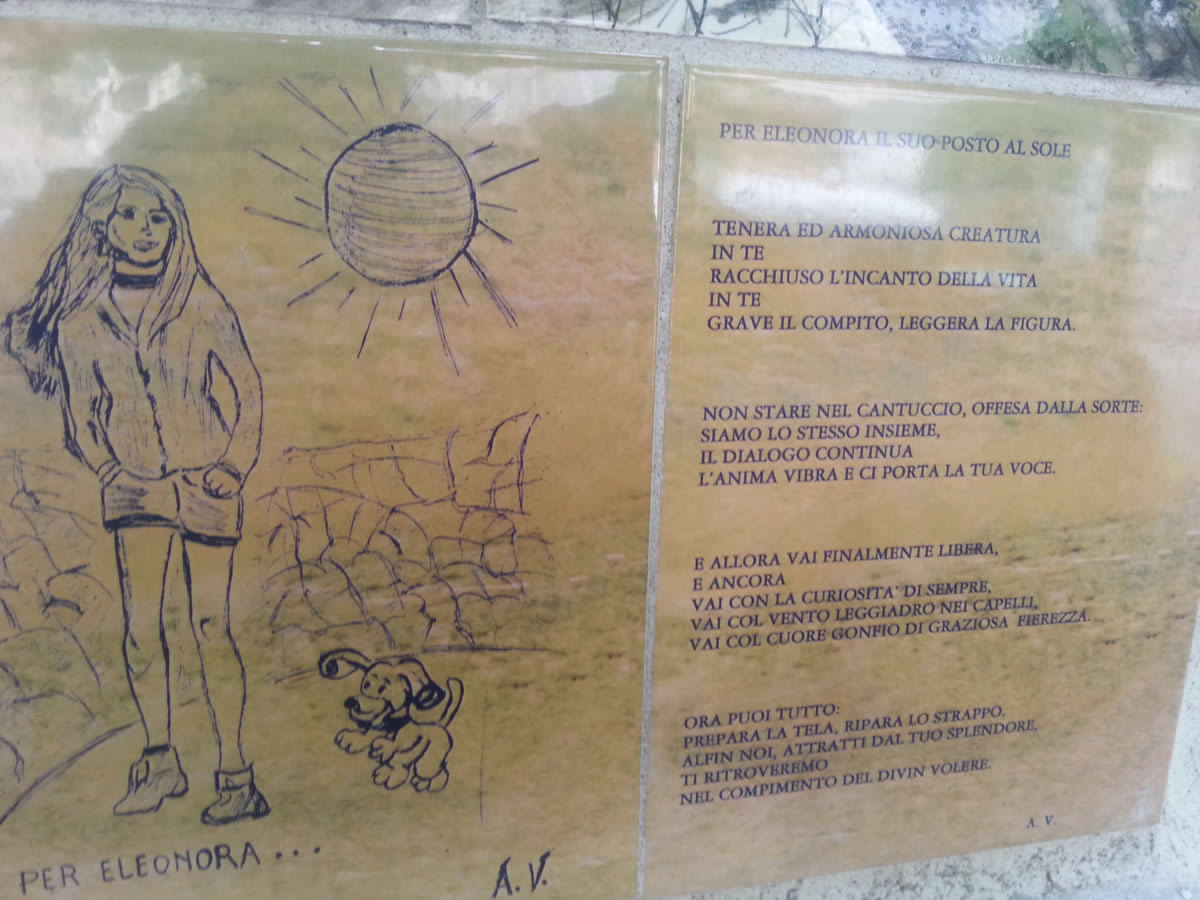 PER ELEONORA...
A.V.
PER ELEONORA IL SUO POSTO AL SOLE
TENERA ED ARMONIOSA CREATURA
IN TE
RACCHIUSO L'INCANTO DELLA VITA
IN TE
GRAVE IL COMPITO, LEGGERA LA FIGURA.
NON STARE NEL CANTUCCIO, OFFESA DALLA SORTE:
SIAMO LO STESSO INSIEME,
IL DIALOGO CONTINUA
L'ANIMA VIBRA E CI PORTA LA TUA VOCE.
E ALLORA VAI FINALMENTE LIBERA,
E ANCORA
VAI CON LA CURIOSITA' DI SEMPRE,
VAI COL VENTO LEGGIADRO NEI CAPELLI,
VAI COL CUORE GONFIO DI GRAZIOSA FIEREZZA.
ORA PUOI TUTTO:
PREPARA LA TELA, RIPARA LO STRAPPO.
ALFIN NOI, ATTRATTI DAL TUO SPLENDORE,
TI RITROVEREMO
NEL COMPIMENTO DEL DIVIN VOLERE.
A. V.